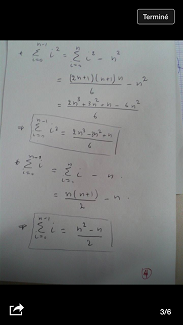 Terminé
* \sum_{i=1}^{n-1} i² = \sum_{i=1}^{n} i² - n²
= \frac{(2n+1)(n+1)n}{6} - n²
= \frac{2n³+3n²+n-6n²}{6}
⇒ \sum_{i=1}^{n-1} i² = \frac{2n³-3n²+n}{6}
* \sum_{i=1}^{n-1} i = \sum_{i=1}^{n} i - n
= \frac{n(n+1)}{2} - n.
⇒ \sum_{i=1}^{n-1} i = \frac{n²-n}{2}
4
3/6